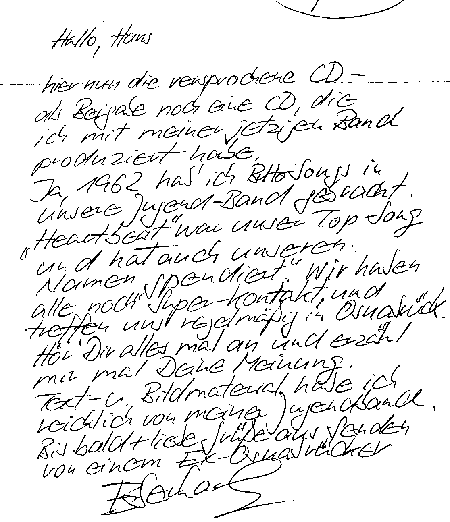 Hallo, Hans
hier nun die versprochene CD –
als Beigabe noch eine CD, die
ich mit meiner jetzigen Band
produziert habe.
Ja, 1962 hab' ich Songs in
unsere Jugend-Band gebracht.
„Heartbeat" war unser Top-Song
und hat auch unseren
Namen „spendiert". Wir haben
alle noch Super-Kontakt, und
treffen uns regelmäßig in Osnabrück.
Hör' Dir alles mal an und erzähl
mir mal Deine Meinung.
Text- u. Bildmaterial habe ich
reichlich von meiner Jugendband.
Bis bald + liebe Grüße aus
von einem Ex-Osnabrücker